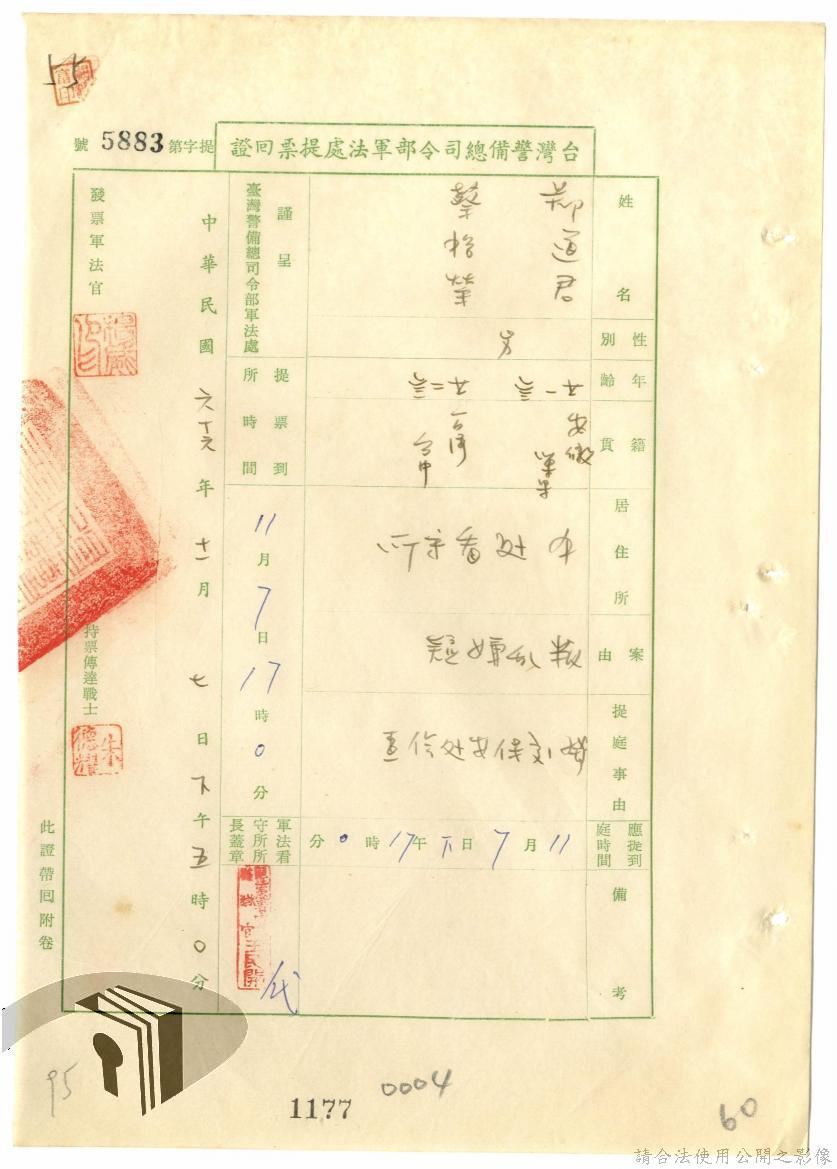 55
台灣警備總司令部軍法處提票回證
提字第5883號
姓名
鄭道君
蔡裕榮
性別
男
年齡
廿一歲
廿二歲
籍貫
安徽
台灣
台中
居住所
本处看守所
案由
叛乱嫌疑
提庭事由
应提到庭時間
11月7日下午17時0分
備考
謹呈
臺灣警備總司令部軍法處
提票到所時間
11月7日17時0分
軍法看守所所長蓋章
代
中華民國六十六年十一月七日下午五時0分
發票軍法官
持票傳達戰士
朱德耀
此證帶回附卷
95
1177
0004
60
請合法使用公開之影像